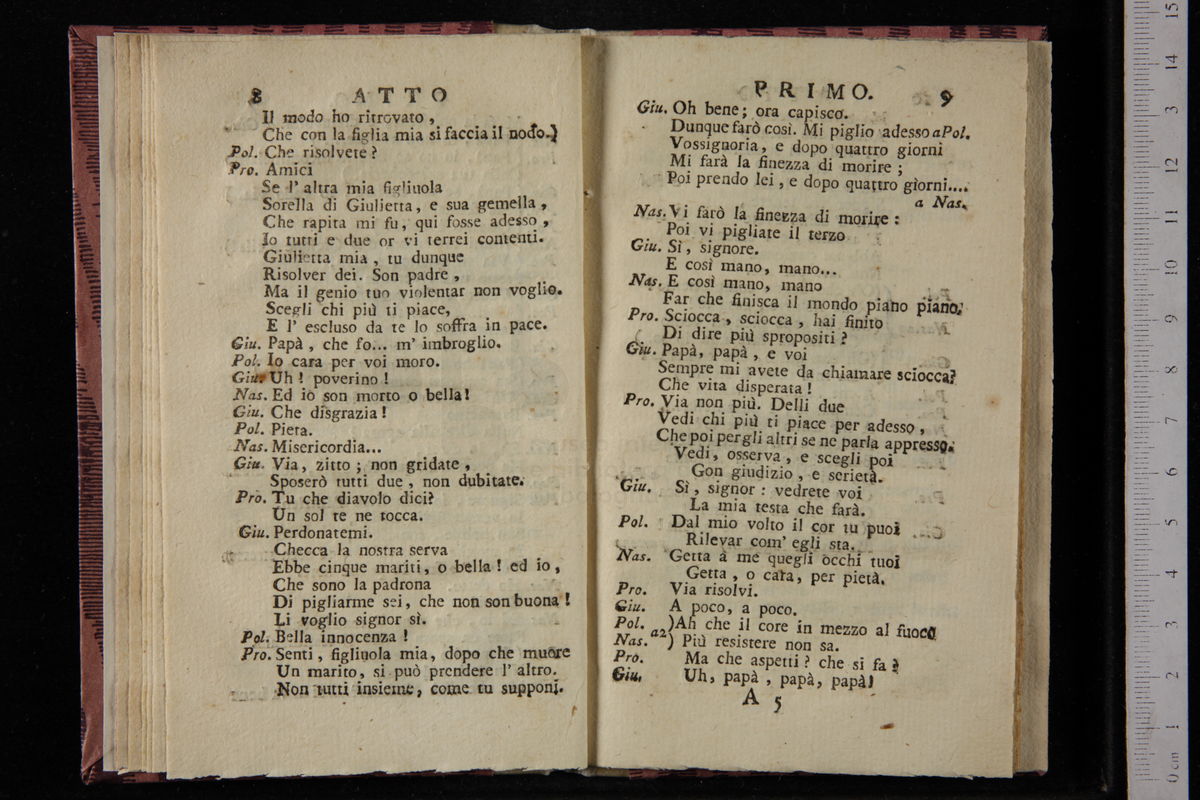 8 ATTO
Il modo ho ritrovato ,
Che con la figlia mia si faccia il nodo.)
Pol. Che risolvete ?
Pro. Amici
Se l' altra mia figliuola
Sorella di Giulietta, e sua gemella ,
Che rapita mi fu, qui fosse adesso ,
Io tutti e due or vi terrei contenti.
Giulietta mia , tu dunque
Risolver dei. Son padre ,
Ma il genio tuo violentar non voglio.
Scegli chi più ti piace,
E l' escluso da te lo soffra in pace.
Giu. Papà , che fo... m' imbroglio.
Pol. Io cara per voi moro.
Giu. Uh ! poverino !
Nas. Ed io son morto o bella!
Giu. Che disgrazia !
Pol. Pieta.
Nas. Misericordia...
Giu. Via, zitto ; non gridate ,
Sposerò tutti due , non dubitate.
Pro. Tu che diavolo dici?
Un sol te ne tocca.
Giu. Perdonatemi.
Checca la nostra serva
Ebbe cinque mariti, o bella ! ed io ,
Che sono la padrona
Di pigliarme sei, che non son buona !
Li voglio signor sì.
Pol. Bella innocenza !
Pro. Senti , figliuola mia, dopo che muore
Un marito, si può prendere l' altro.
Non tutti insieme, come tu supponi.
PRIMO. 9
Giu. Oh bene; ora capisco.
Dunque farò così. Mi piglio adesso a Pol.
Vossignoria, e dopo quattro giorni
Mi farà la finezza di morire ;
Poi prendo lei , e dopo quattro giorni....
a Nas.
Nas. Vi farò la finezza di morire :
Poi vi pigliate il terzo
Giu. Sì, signore.
E così mano, mano...
Nas. E così mano, mano
Far che finisca il mondo piano piano.
Pro. Sciocca , sciocca , hai finito
Di dire più spropositi ?
Giu. Papà, papà , e voi
Sempre mi avete da chiamare sciocca?
Che vita disperata !
Pro. Via non più. Delli due
Vedi chi più ti piace per adesso ,
Che poi per gli altri se ne parla appresso.
Vedi, osserva , e scegli poi
Gon giudizio , e serietà.
Giu. Sì , signor : vedrete voi
La mia testa che farà.
Pol. Dal mio volto il cor tu puoi
Rilevar com' egli sta.
Nas. Getta a me quegli occhi tuoi
Getta , o cara, per pietà.
Pro. Via risolvi.
Giu. A poco, a poco.
Pol. )Ah che il core in mezzo al fuoco
a2
Nas. ) Più resistere non sa.
Pro. Ma che aspetti ? che si fa ?
Giu. Uh, papà , papà, papà!
A 5
0 cm 1 2 3 4 5 6 7 8 9 10 11 12 13 14 15